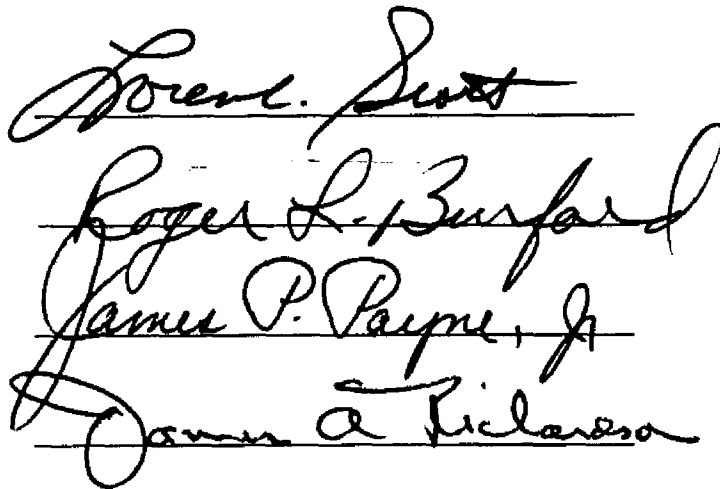 Loren C. Scott
Roger L. Burford
James P. Payne, Jr
James A Richardson